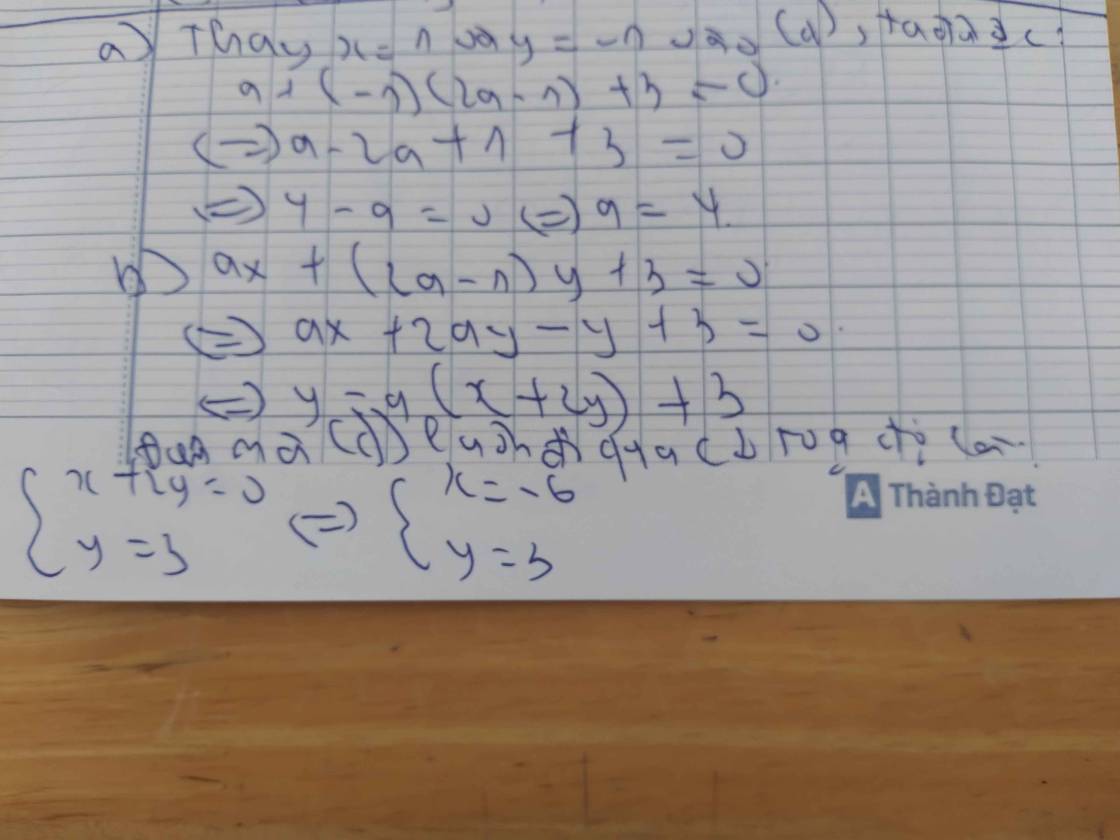 a) Thay x = 1 và y = -1 vào (d), ta được:
a + (-1)(2a - 1) + 3 = 0.
(=) a - 2a + 1 + 3 = 0
(=) 4 - a = 0 (=) a = 4.
b) ax + (2a - 1) y + 3 = 0.
(=) ax + 2ay - y + 3 = 0.
(=) y = a (x + 2y) + 3
mà (d) luôn đi qua
{ x + 2y = 0 (=) { x = -6
{ y = 3 { y = 3
A Thành Đạt